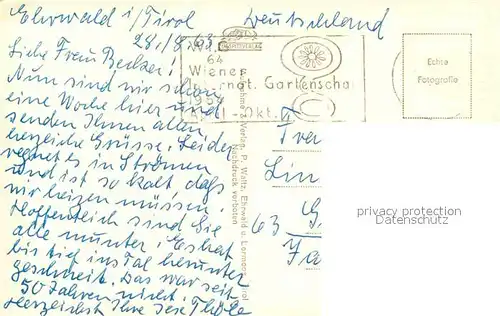 Ehrwald i/Tirol
28./8. 63
Liebe Frau Becker!
Nun sind wir schon
eine Woche hier und
senden Ihnen allen
herzliche Grüsse. Leider
regnet es in Strömen
und ist so kalt daß
wir heizen müssen.
Hoffentlich sind Sie
alle munter! Es hat
bis tief ins Tal herunter
geschneit. Das war seit
50 Jahren nicht.
Herzlichst Ihre
Deutschland
64
Wiener
Internat. Gartenschau
1964
April-Okt.
Echte
Fotografie
Verlag P. Waltz, Ehrwald u. Lermoos, Tirol
Nachdruck verboten
Frau
Lin
63
privacy protection
Datenschutz